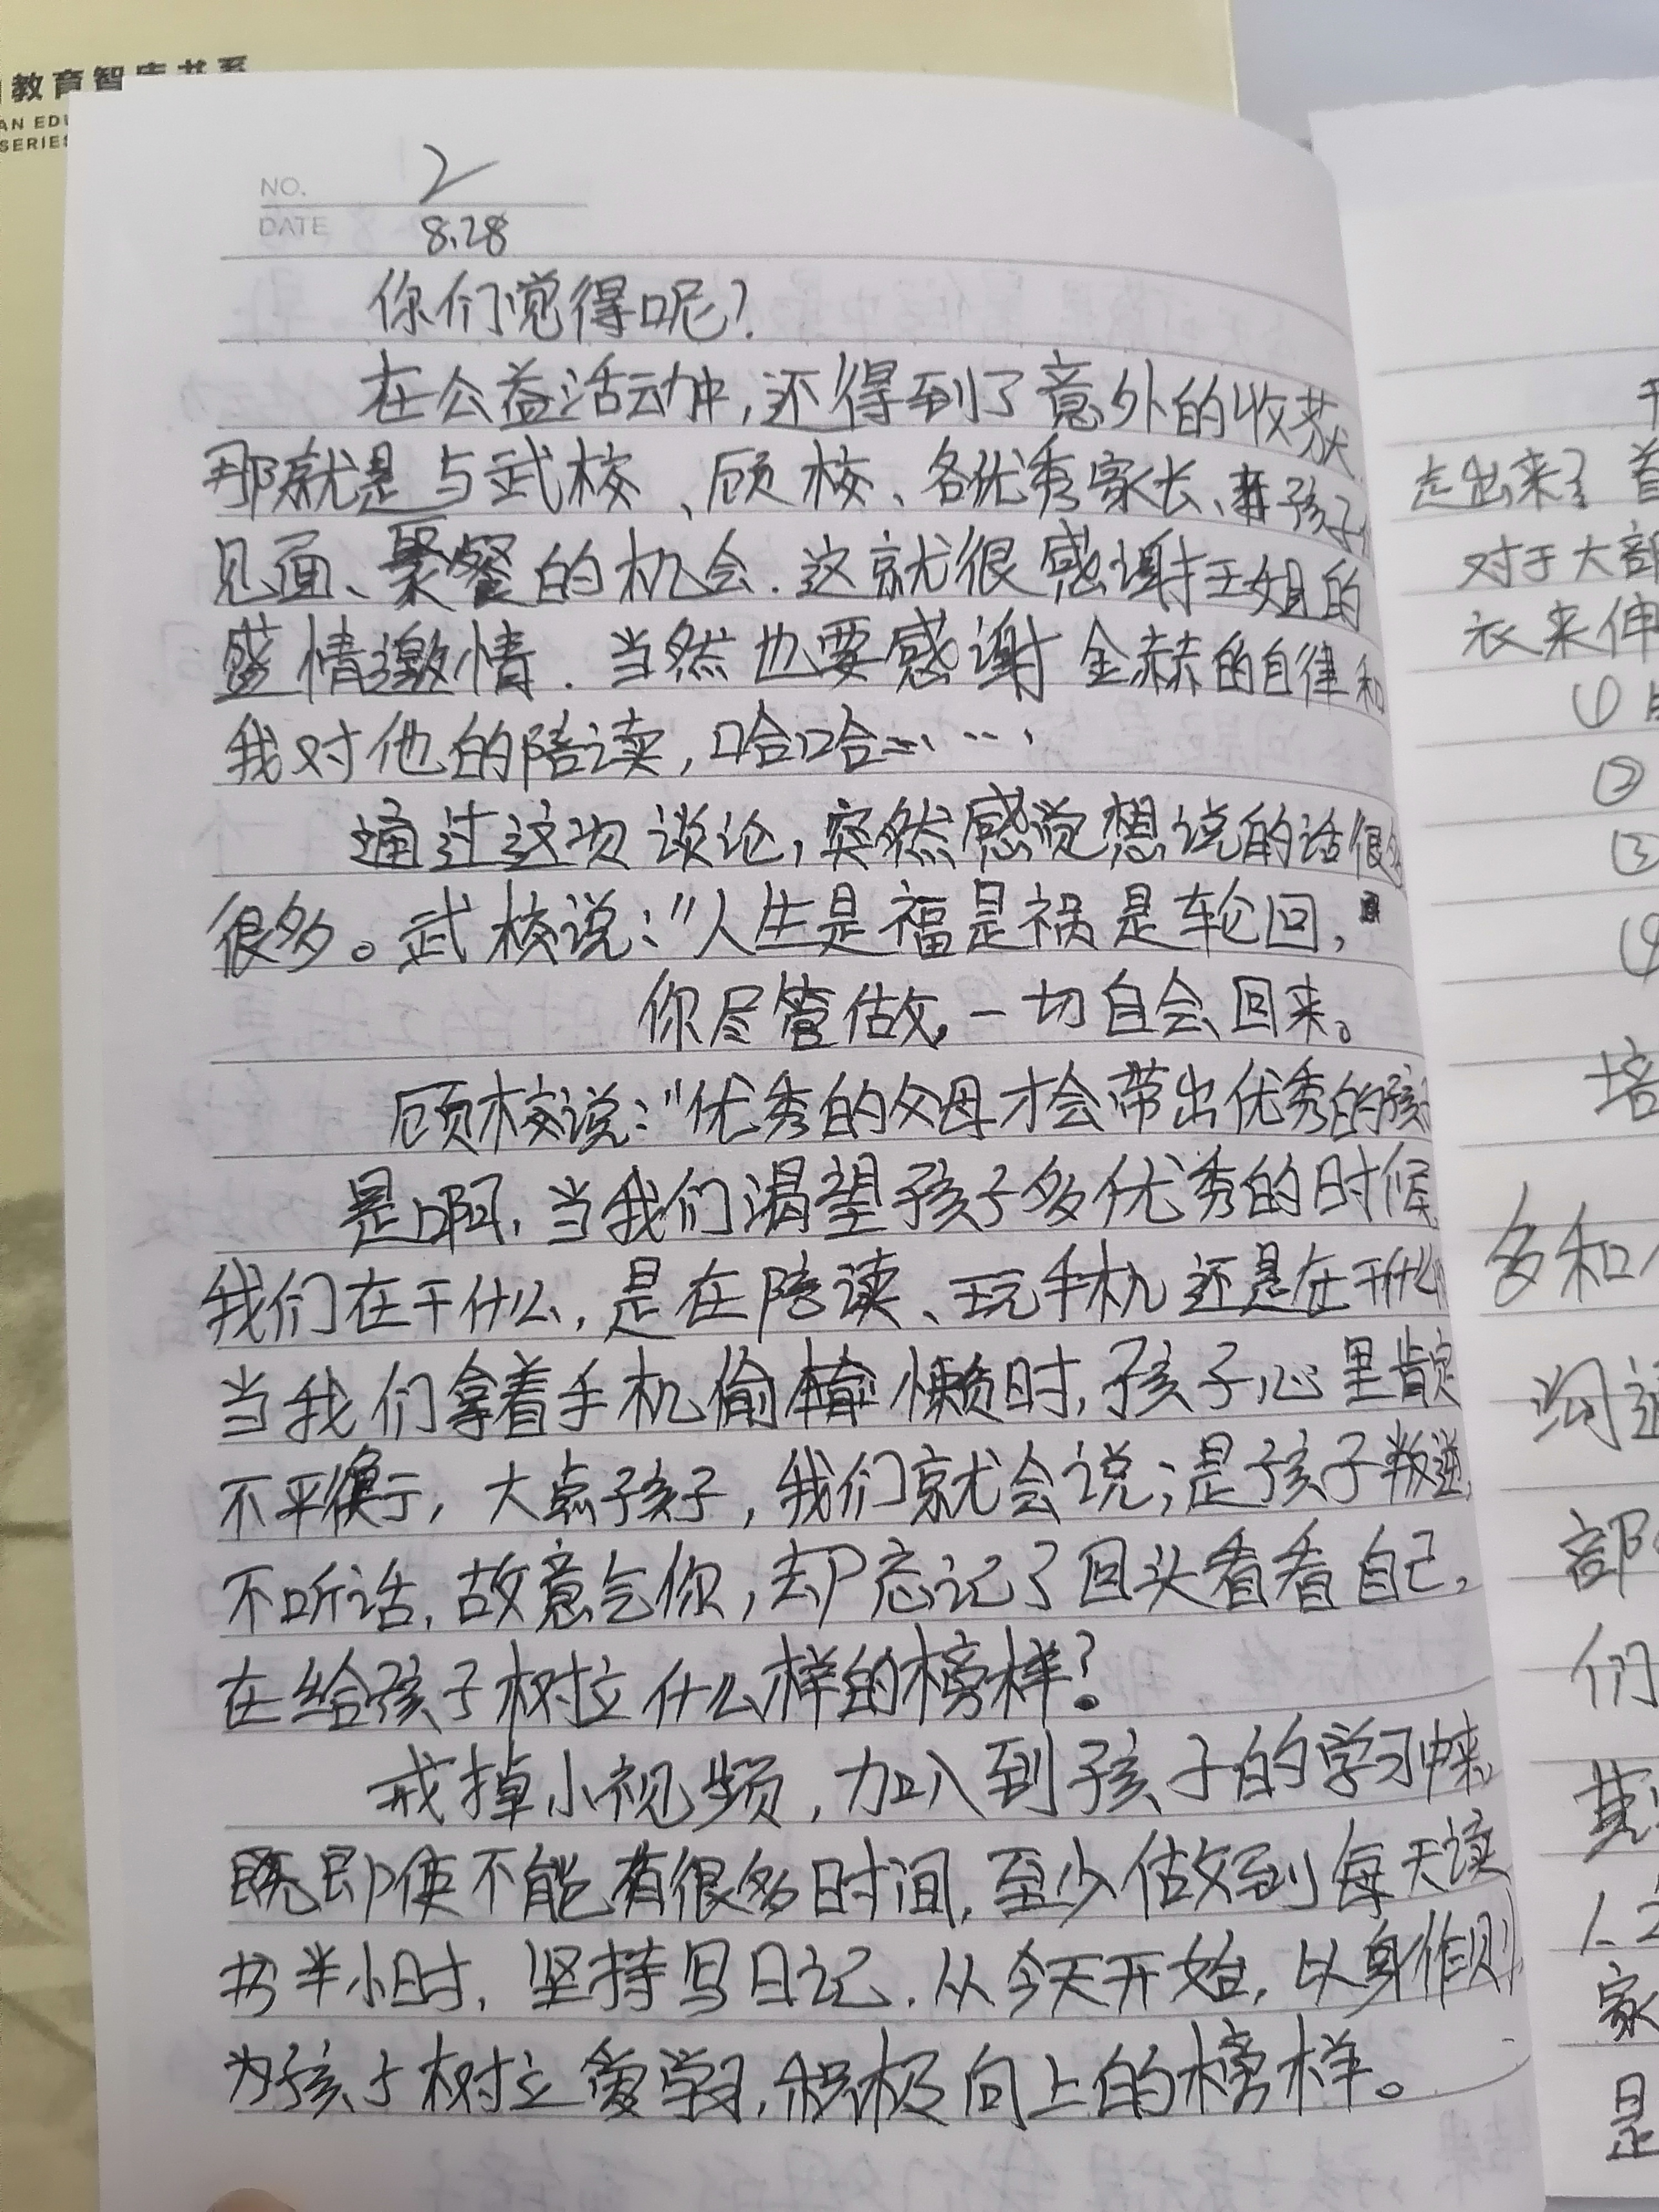 教育智库书系
AN EDU
SERIES
NO. 2
DATE 8.28
你们觉得呢?
在公益活动中,还得到了意外的收获
那就是与武校、顾校、各优秀家长、孩子们
见面、聚餐的机会.这就很感谢王姐的
盛情邀情.当然也要感谢金赫的自律和
我对他的陪读,哈哈……
通过这次谈论,突然感觉想说的话很多
很多。武校说:"人生是福是祸是轮回,
你尽管做,一切自会回来。
顾校说:"优秀的父母才会带出优秀的孩子
是啊,当我们渴望孩子多优秀的时候
我们在干什么,是在陪读、玩手机还是在干什么
当我们拿着手机偷懒时,孩子心里肯定
不平衡,大点孩子,我们就会说;是孩子叛逆,
不听话,故意气你,却忘记了回头看看自己,
在给孩子树立什么样的榜样?
戒掉小视频,加入到孩子的学习中来,
即使不能有很多时间,至少做到每天读
书半小时,坚持写日记.从今天开始,以身作则,
为孩子树立爱学习,积极向上的榜样。
走出来了 首
对于大部
衣来伸
①
②
③
④
培
多和
沟通
部
们
家
是